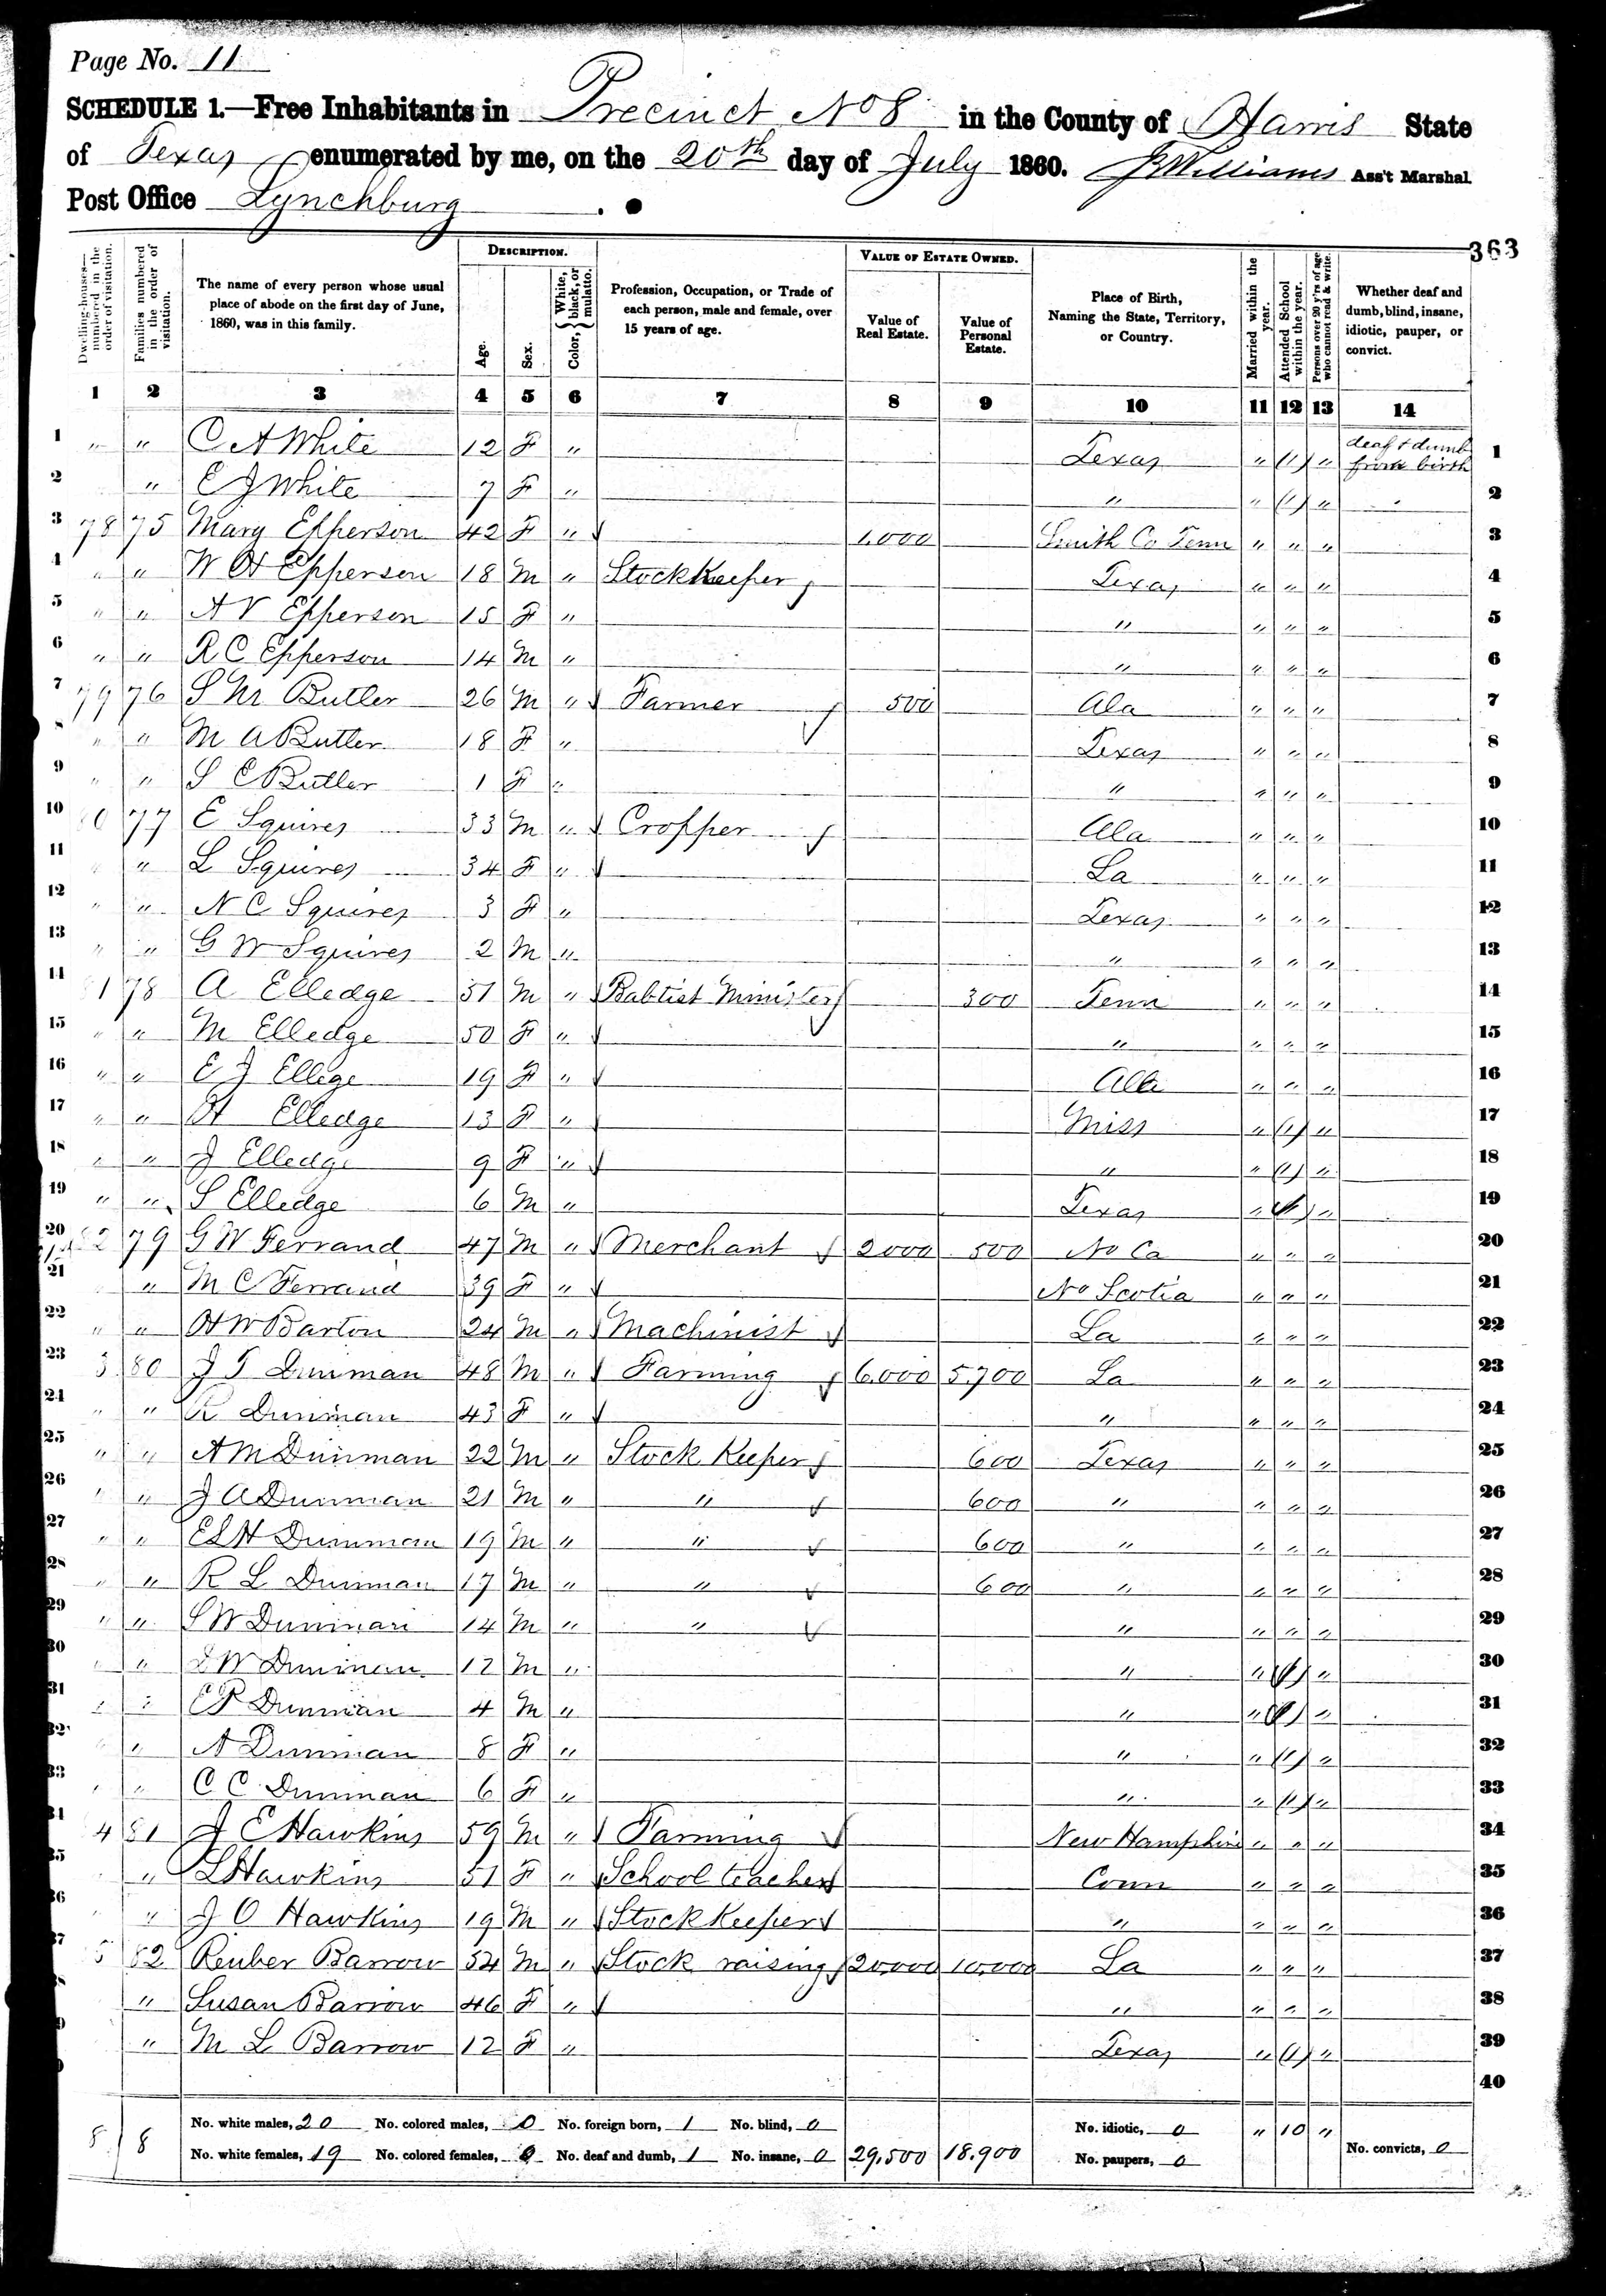 Page No. 11
SCHEDULE 1.—Free Inhabitants in Precinct No 8 in the County of Harris State
of Texas enumerated by me, on the 20th day of July 1860. J Williams Ass't Marshal.
Post Office Lynchburg
363
Dwelling-houses—numbered in the order of visitation. Families numbered in the order of visitation. The name of every person whose usual place of abode on the first day of June, 1860, was in this family. DESCRIPTION. Age. Sex. Color, White, black, or mulatto. Profession, Occupation, or Trade of each person, male and female, over 15 years of age. VALUE OF ESTATE OWNED. Value of Real Estate. Value of Personal Estate. Place of Birth, Naming the State, Territory, or Country. Married within the year. Attended School within the year. Persons over 20 y'rs of age who cannot read & write. Whether deaf and dumb, blind, insane, idiotic, pauper, or convict.
1 2 3 4 5 6 7 8 9 10 11 12 13 14
1 " " C A White 12 F " Texas " (1) " deaf & dumb from birth 1
2 " E J White 7 F " " " (1) " 2
3 78 75 Mary Epperson 42 F " 1.000 Smith Co Tenn " " " 3
4 " " W H Epperson 18 M " Stock Keeper Texas " " " 4
5 " " A V Epperson 15 F " " " " " 5
6 " " R C Epperson 14 M " " " " " 6
7 79 76 S M Butler 26 M " Farmer 500 Ala " " " 7
8 " " M A Butler 18 F " Texas " " " 8
9 " " S C Butler 1 F " " " " " 9
10 0 77 E Squires 33 M " Cropper Ala " " " 10
11 " L Squires 34 F " La " " " 11
12 " " N C Squires 3 F " Texas " " " 12
13 " " G W Squires 2 M " " " " " 13
14 1 78 A Elledge 51 M " Babtist Minister 300 Tenn " " " 14
15 " " M Elledge 50 F " " " " " 15
16 " " E J Ellege 19 F " Ala " " " 16
17 " " H Elledge 13 F " Miss " (1) " 17
18 " " J Elledge 9 F " " " (1) " 18
19 " " S Elledge 6 M " Texas " (1) " 19
20 2 79 G W Ferrand 47 M " Merchant 2000 500 No Ca " " " 20
21 " M C Ferrand 39 F " No Scotia " " " 21
22 " " H W Barton 24 M " Machinist La " " " 22
23 3 80 J T Dunman 48 M " Farming 6.000 5.700 La " " " 23
24 " " R Dunman 43 F " " " " " 24
25 " " A M Dunman 22 M " Stock Keeper 600 Texas " " " 25
26 " " J A Dunman 21 M " " 600 " " " " 26
27 " " E L H Dunman 19 M " " 600 " " " " 27
28 " " R L Dunman 17 M " " 600 " " " " 28
29 " " S W Dunman 14 M " " " " " " 29
30 " " W Dunman 12 M " " " (1) " 30
31 " " Dunman 4 M " " " (1) " 31
32 " " A Dunman 8 F " " " (1) " 32
33 " " C C Dunman 6 F " " " (1) " 33
34 4 81 J E Hawkins 59 M " Farming New Hampshire " " " 34
35 " L Hawkins 51 F " School teacher Conn " " " 35
36 " " J O Hawkins 19 M " Stock Keeper " " " " 36
37 5 82 Reuber Barrow 54 M " Stock raising 20.000 10.000 La " " " 37
38 " Susan Barrow 46 F " " " " " 38
39 " M L Barrow 12 F " Texas " (1) " 39
40
8 8 No. white males, 20 No. colored males, 0 No. foreign born, 1 No. blind, 0 No. idiotic, 0 " 10 "
No. white females, 19 No. colored females, 0 No. deaf and dumb, 1 No. insane, 0 29,500 18.900 No. paupers, 0 No. convicts, 0